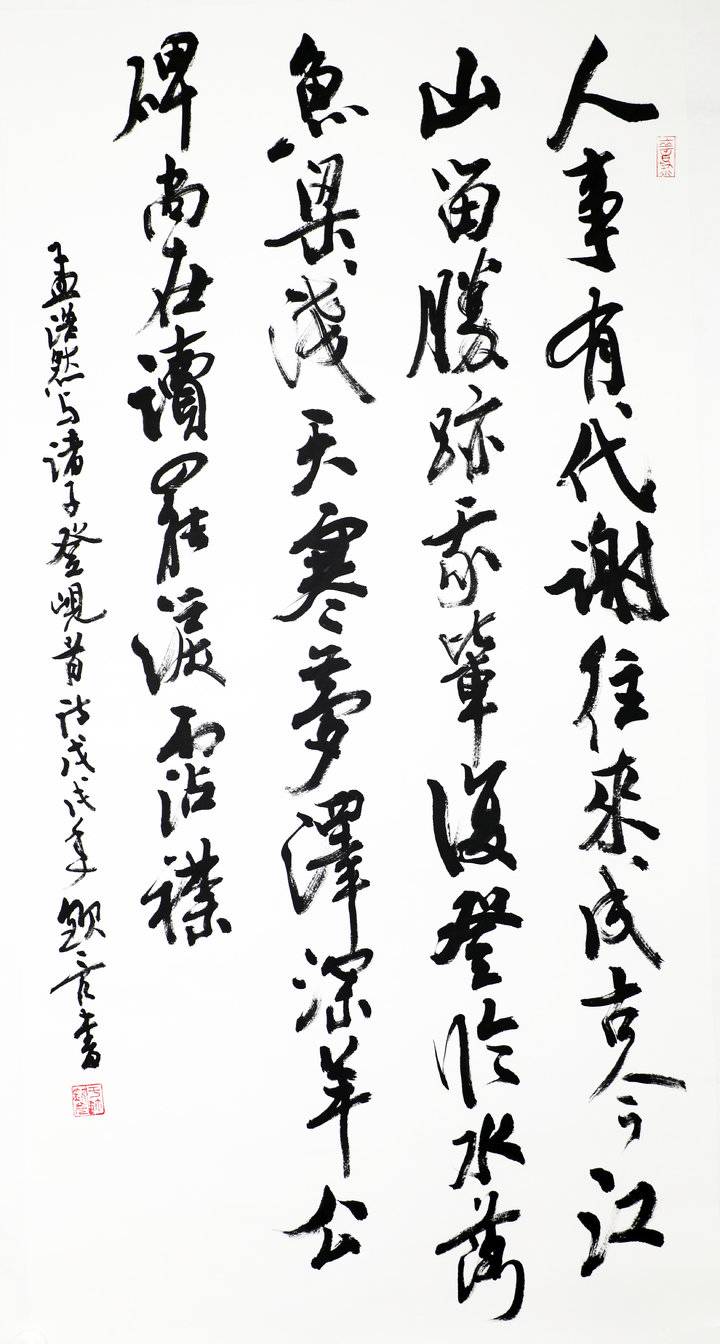 人事有代謝往來成古今江
山留勝跡我輩復登臨水落
魚梁淺天寒夢澤深羊公
碑尚在讀罷淚沾襟
孟浩然与诸子登岘首诗戊戌年 书